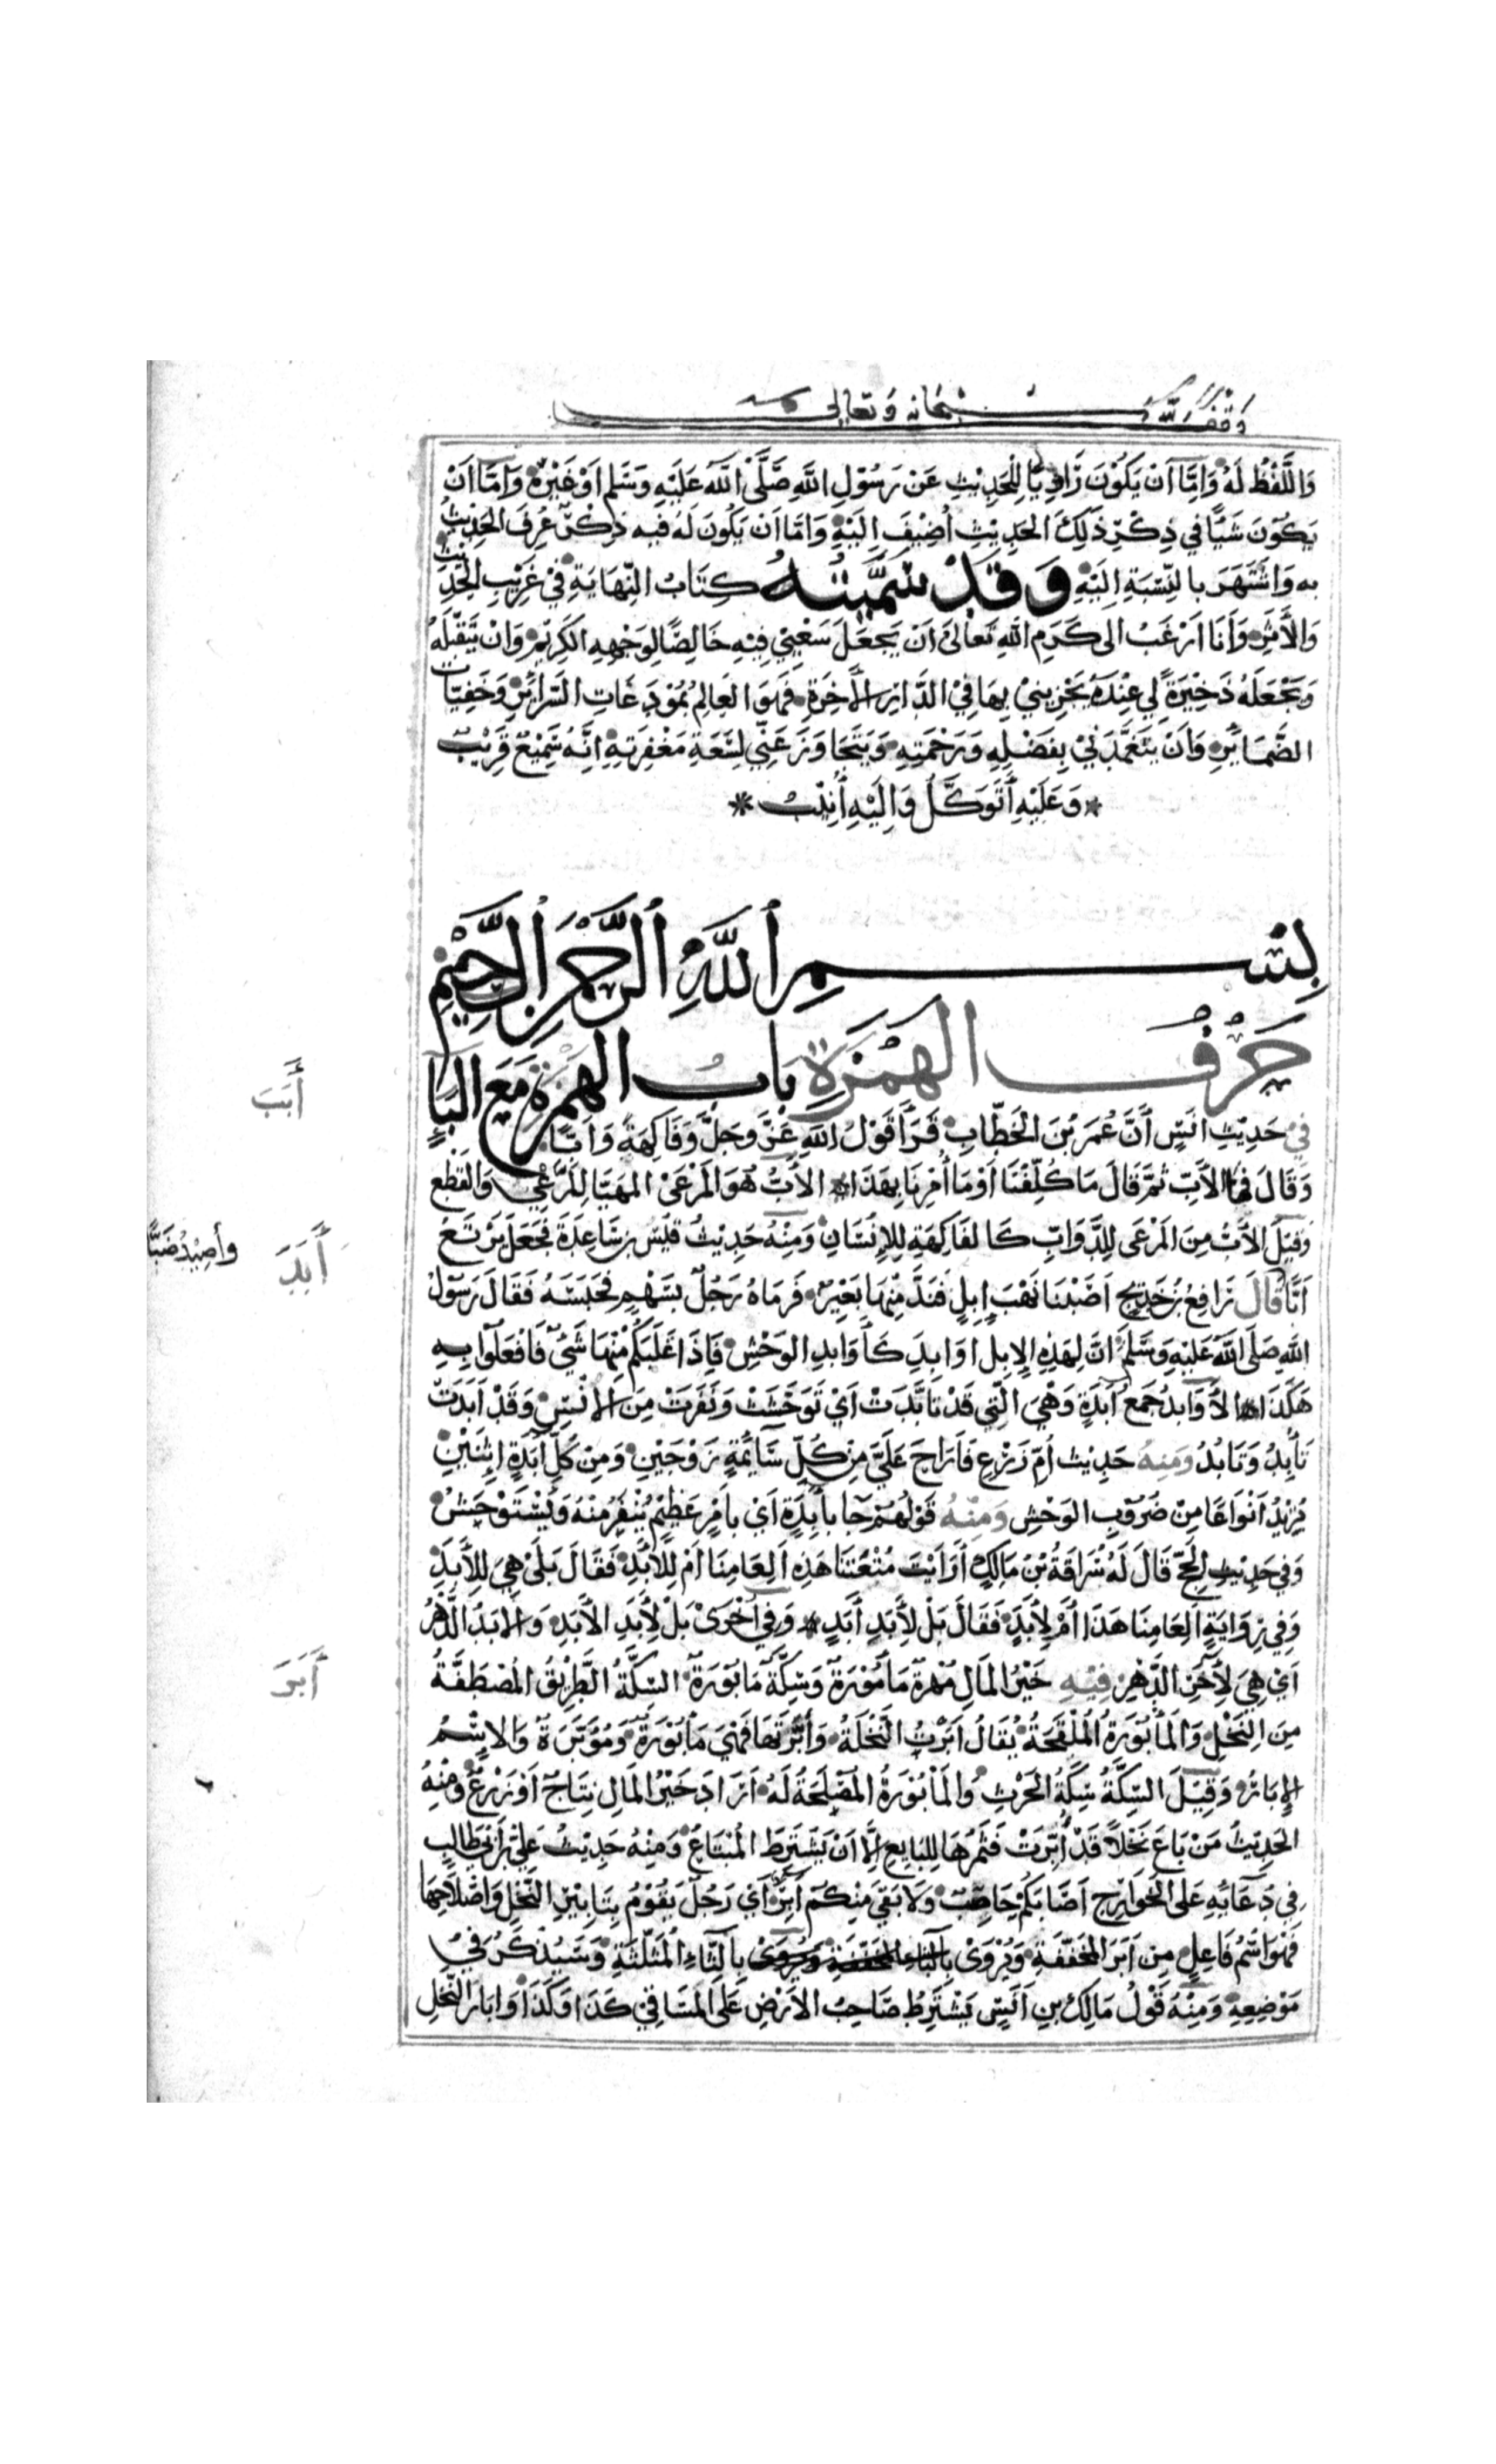 وقف لله سبحانه وتعالى
وَاللَّفْظُ لَهُ وَاِمَّا اَنْ يَكُوْنَ رَاوِيًا لِلْحَدِيْثِ عَنْ رَسُوْلِ اللهِ صَلَّى اللهُ عَلَيْهِ وَسَلَّم اَوْ غَيْرِهِ وَاِمَّا اَنْ
يَكُوْنَ سَبَبًا في ذِكْرِ ذَلِكَ الحَدِيْثِ اُضِيْفَ اِلَيْهِ وَاِمَّا اَنْ يَكُونَ لَهُ فيه ذِكْرٌ عُرِفَ الحَدِيْثُ
به وَاشْتَهَرَ بالنِّسْبَةِ اِلَيْهِ وَقَدْ سَمَّيْتُهُ كِتَابُ النِّهَايَةِ فِيْ غَرِيْبِ الْحَدِيْثِ
وَالأَثَرِ وَاَنَا اَرْغَبُ الى كَرَمِ اللهِ تَعَالىَ اَنْ يَجعَلَ سَعْيِيْ فِيْهِ خَالِصًا لِوَجْهِهِ الكَرِيْمِ وَاَنْ يَتَقَبَّلَهُ
وَيَجْعَلَهُ ذَخِيْرَةً لي عِنْدَهُ يَجْزِيْنِيْ بِهَا فِيْ الدَّارِ الآخِرَةِ فَهُوَ العَالِمُ بمُوْدَعَاتِ السَّرَائِرِ وَخَفِيَّات
الضَّمَائِرِ وَاَنْ يَتَغَمَّدَنِيْ بِفَضْلِهِ وَرَحْمَتِهِ وَيَتَجَاوَزَ عَنِّي لِسَعَةِ مَغْفِرَتِهِ اِنَّهُ سَمِيْعٌ قَرِيْبٌ
* وَعَلَيْهِ أَتَوَكَّلُ وَاِلَيْهِ اُنِيْبُ *
بِسْمِ اللهِ الرَّحْمَنِ الرَّحِيْمِ
حَرْفُ الهَمْزَةِ بابُ الهَمْزَةِ مَعَ البَاءِ
أَبَبَ
في حَدِيْثِ اَنَسٍ أَنَّ عُمَرَ بْنَ الخَطَّابِ قَرَأَ قَوْلَ اللهِ عَزَّ وجَلَّ وَفَاكِهَةً وَاَبًّا
وَقَالَ فما الاَبُّ ثمَّ قَالَ مَا كُلِّفْنَا اَوْ مَا اُمِرْنَا بِهَذَا * الاَبُّ هُوَ المَرْعَىْ المهَيَّا لِلرَّعْيِ وَالقَطْعِ
وَقِيْلَ الاَبُّ مِنَ المَرْعَى لِلدَّوَابِّ كَالفَاكِهَةِ لِلإِنْسَانِ وَمِنْهُ حَدِيْثُ قُسِّ بنِ سَاعِدَةَ فَجَعَلَ يَرْتَعُ
أَبَدَ
وأصيدُ ضَبًّا
اَبًّا قَالَ رَافِعُ بنُ خَدِيْجٍ اَصَبْنَا نَهْبَ اِبِلٍ فَنَدَّ مِنْهَا بَعِيْرٌ فَرَمَاهُ رَجُلٌ بسَهْمٍ فَحَبَسَهُ فَقَالَ رَسُوْلُ
اللهِ صَلَّى اللهُ عَلَيْهِ وَسَلَّمَ اِنَّ لِهَذِهِ الاِبِلِ اوَابِدَ كَأَوَابِدِ الوَحْشِ فَاِذَا غَلَبَكُمْ مِنْهَا شَيْءٌ فَافْعَلُوْا بِهِ
هَكَذَا * الأَوَابِدُ جَمْعُ آبِدَةٍ وَهْيَ الَّتِي قَدْ تَابَّدَتْ اَيْ تَوَحَّشَتْ وَنَفَرَتْ مِنَ الانْسِ وَقَدْ اَبَدَتْ
تَأبِدُ وَتَابُدُ وَمِنهُ حَدِيْثُ اُمِّ زَرْعٍ فَاَرَاحَ عَلَيَّ مِنْ كُلِّ سَايِمَةٍ زَوْجَيْنِ وَمِنْ كُلِّ آبِدَةٍ اثْنَيْنِ
يُرِيْدُ اَنْوَاعًا مِنْ ضُرُوْبِ الوَحْشِ وَمِنْهُ قَوْلُهُمْ جَا بِآبِدَةٍ اَيْ بأَمْرٍ عَظِيْمٍ يُنْفَرُ مِنْهُ وَيُسْتَوْحَشُ
وَفي حَدِيْثِ الحَجِّ قَالَ لَهُ سُرَاقَةُ بْنُ مَالِكٍ اَرَاَيْتَ مُتْعَتَنَا هَذِهِ اَلِعَامِنَا اَمْ لِلأَبَدِ فَقَالَ بَلْ هِيَ لِلأَبَدِ
وَفي رِوَايَةٍ اَلِعَامِنَا هَذَا اَمْ لأَبَدٍ فَقَالَ بَلْ لأَبَدِ أَبَدٍ * وَفي اُخْرَىْ بَلْ لأَبَدِ الأَبَدِ وَالابَدُ الدَّهْرُ
أَبَرَ
اَيْ هِيَ لآخِرِ الدَّهْرِ فِيْهِ خَيْرُ المَالِ مُهْرَةٌ مَأمُوْرَةٌ وَسِكَّةٌ مَابُوْرَةٌ السِّكَّةُ الطَّرِيْقُ المُصْطَفَّةُ
مِنَ النَّخْلِ وَالمَأبُوْرَةُ المُلْقَحَةُ يُقَالُ اَبَرْتُ النَّخْلَةَ وَأَبَّرْتُهَا فَهْيَ مَأبُوْرَةٌ وَمُؤَبَّرَةٌ وَالاِسْمُ
الإِبَارُ وَقِيْلَ السِّكَّةُ سِكَّةُ الحَرْثِ وَالمَأبُوْرَةُ المُصْلَحَةُ لَهُ اَرَادَ خَيْرُ المَالِ نِتَاجٌ اَوْ زَرْعٌ وَمِنْهُ
الحَدِيْثُ مَنْ بَاعَ نَخْلاً قَدْ أُبِّرَتْ فَثَمَرُهَا لِلبَايِعِ اِلَّا اَنْ يَشْتَرِطَ المُبْتَاعُ وَمِنْهُ حَدِيْثُ عَلِيِّ بنِ اَبِي طَالِبٍ
فِي دُعَائِهِ عَلى الخَوَارِجِ اَصَابَكُمْ حَاصِبٌ وَلاَ بَقِيَ مِنْكُمْ آبِرٌ اَيْ رَجُلٌ يَقُوْمُ بِتَابِيْرِ النَّخْلِ وَاصْلاَحِهَا
فَهُوَ اسْمُ فَاعِلٍ مِن اَبَرَ المخَفَّفَةِ وَيُرْوَىْ بالثَّاءِ المثَلَّثَةِ وَسَيُذكَرُ فيْ
مَوْضِعِهِ وَمِنْهُ قَوْلُ مَالِكِ بنِ اَنَسٍ يَشْتَرِطُ صَاحِبُ الاَرْضِ عَلَى المُسَاقِيْ كَذَا وَكَذَا وَاِبَارَ النَّخْلِ